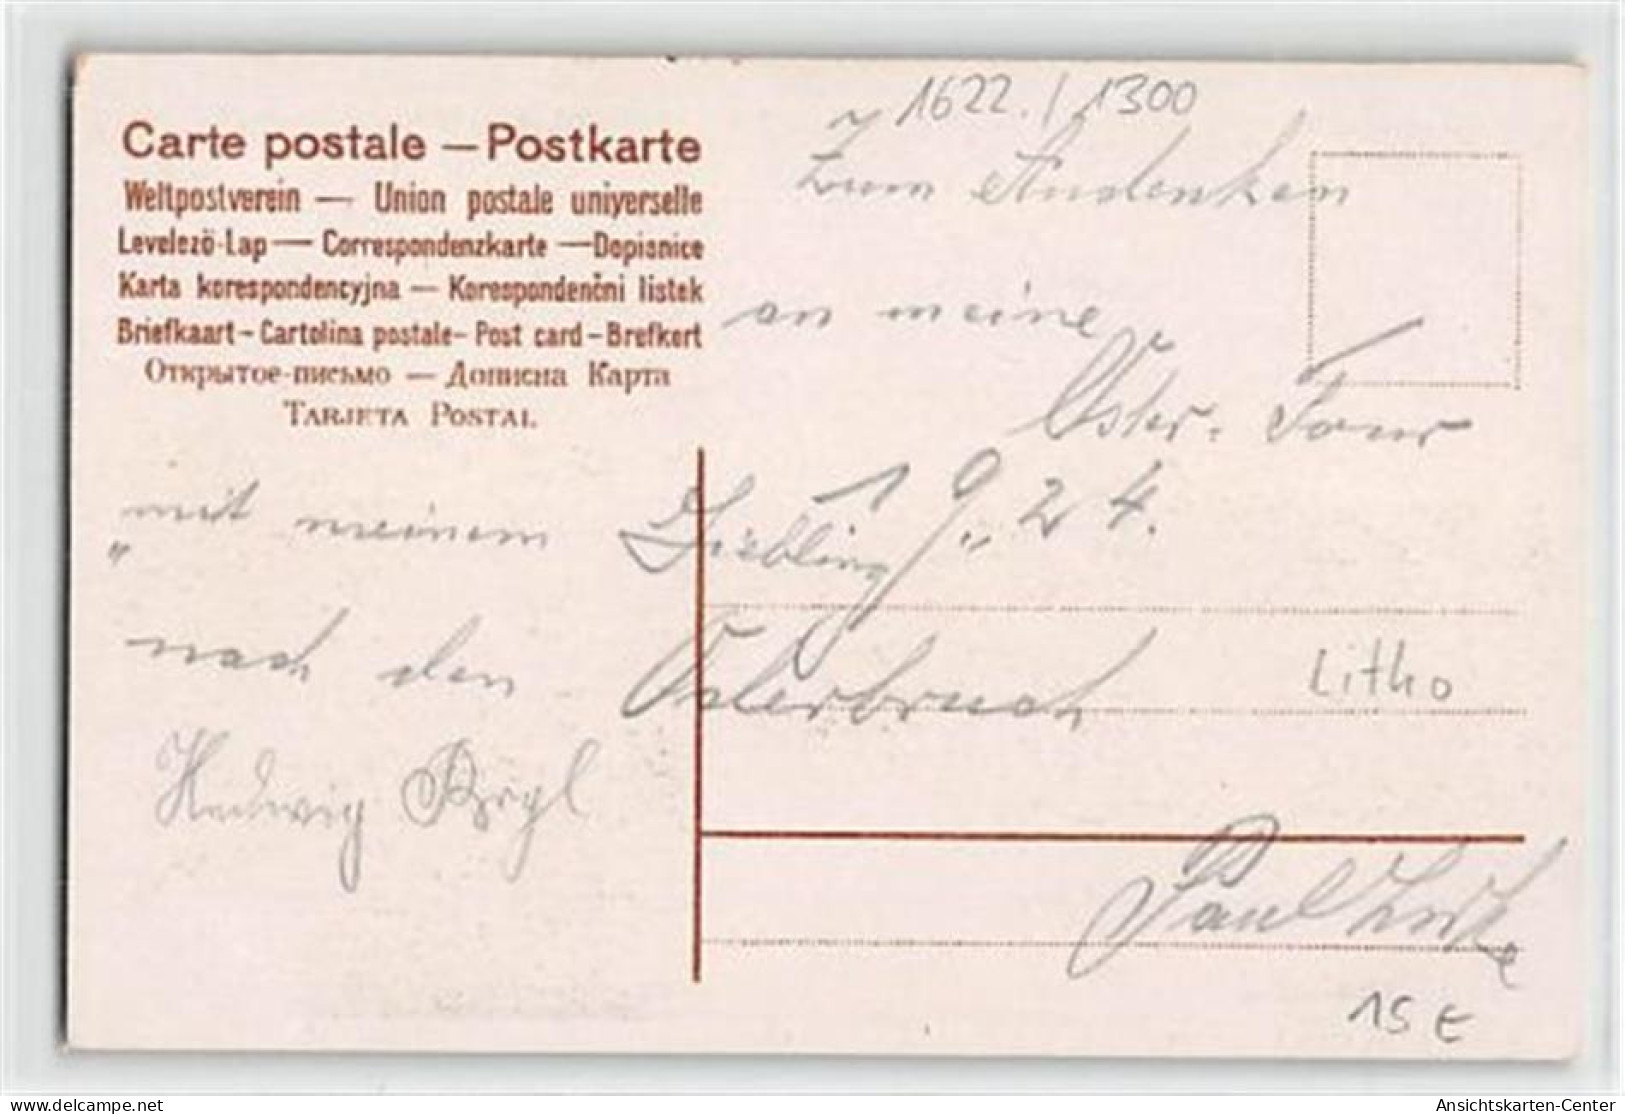 1622./1300
Carte postale — Postkarte
Weltpostverein — Union postale universelle
Levelező-Lap — Correspondenzkarte — Dopisnice
Karta korespondencyjna — Korespondenční listek
Briefkaart - Cartolina postale - Post card - Brefkort
Открытое-письмо — Дописна Карта
TARJETA POSTAL
Zum Andenken
an meine
Oster. Tour
19„24.
„mit meinem Liebling
nach den Osterbruch
Litho
Hedwig
Paul
15 €
delcampe.net
Ansichtskarten-Center